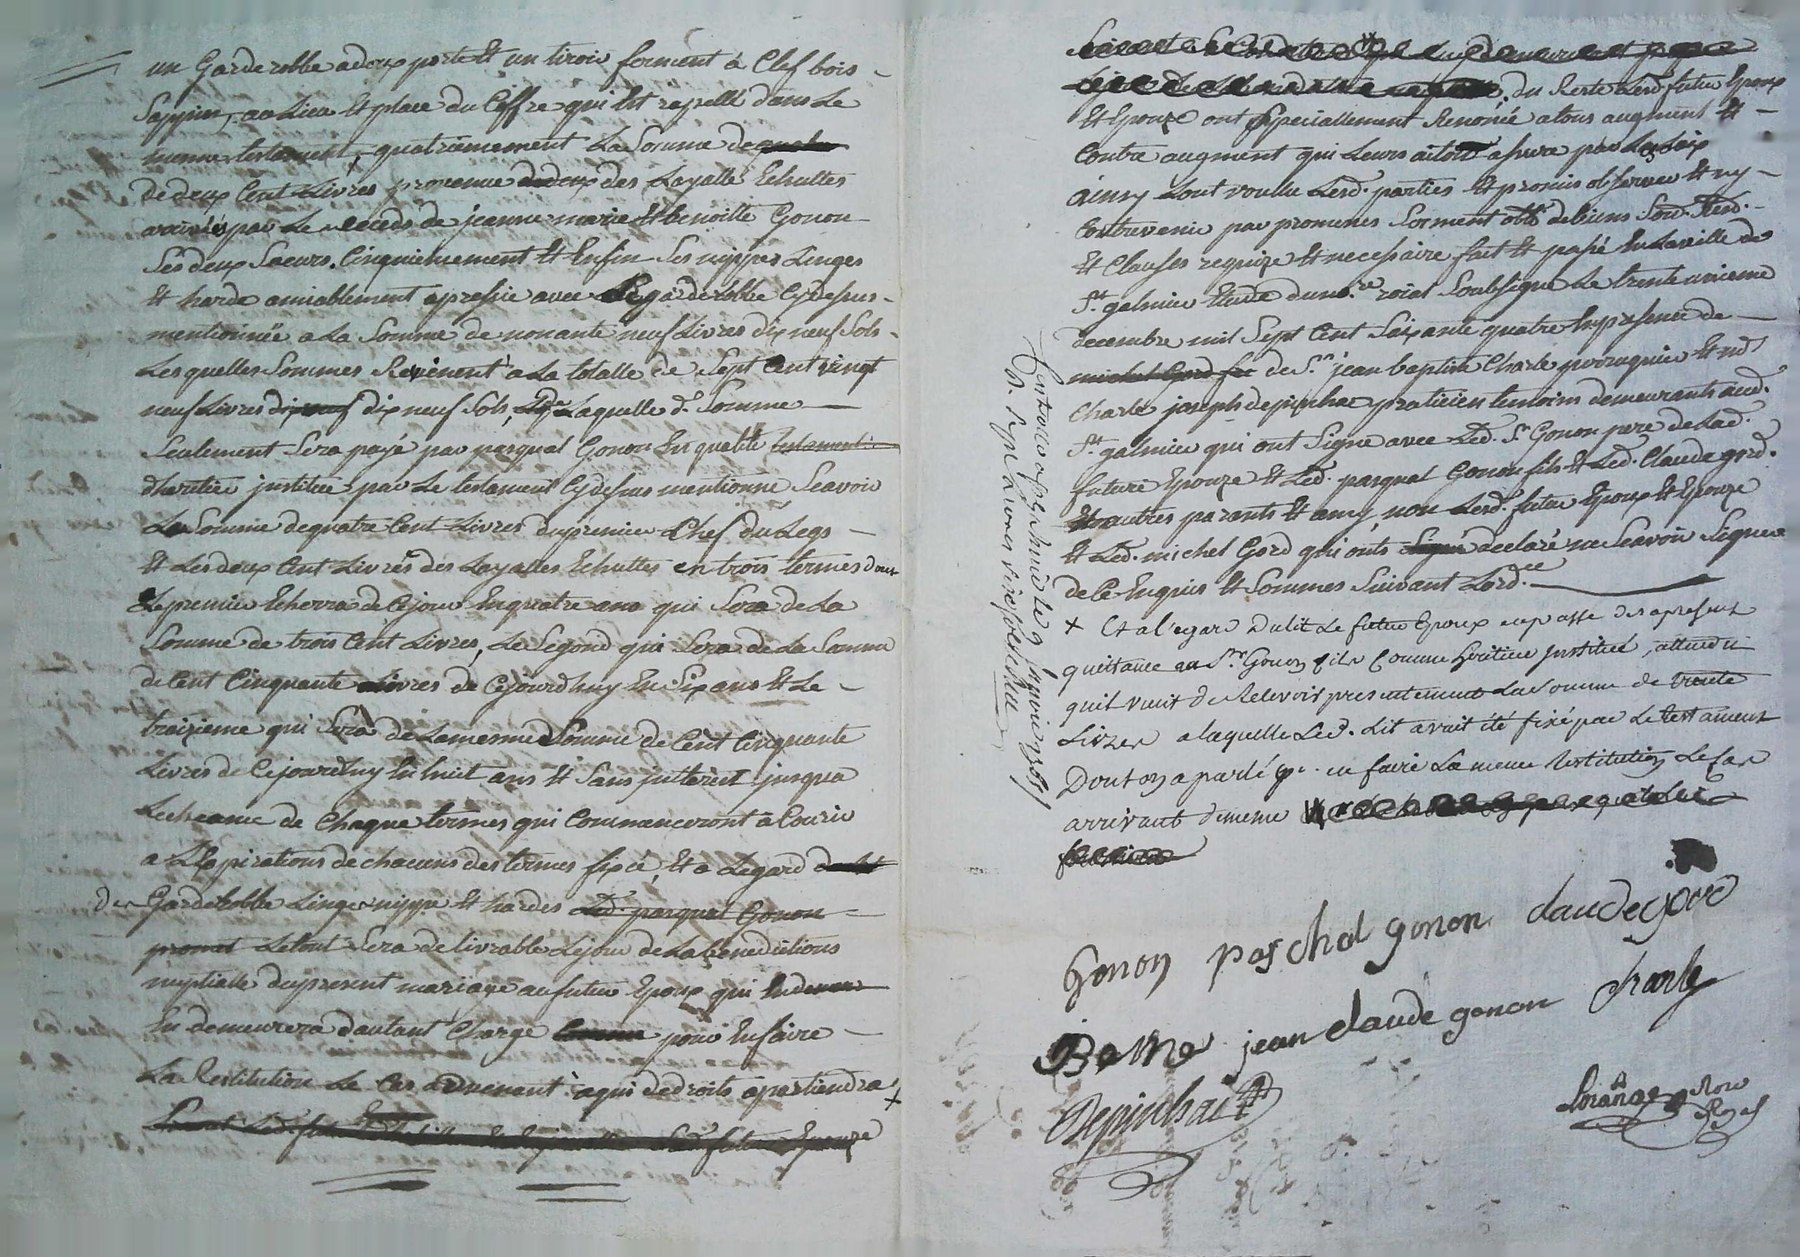 un Garderobbe a deux porte Et un tiroir forment à Clef bois
Sappin, au Lieu Et place du Coffre qui Est rapellé dans Le
meme testament, quatriemement La Somme de
de deux Cent Livres provenue des Layalle Echuttes
par Le deceds de jeanne marie Et benoitte Gonon
Ses deux Saeurs. Cinquiemement Et Enfin Ses nippes Linges
Et harde amiablement apressie avec Le garderobbe Cydessus
mentionnée a La Somme de nonante neuf Livres dix neuf Sols
Lesquelles Sommes Revienent à La totalle de Sept Cent vingt
neuf Livres dix neuf Sols, Laquelle d. Somme
Seulement Sera payé par pasqual Gonon En qualité testament
dheritier justitué par Le testament Cydessus mentionne Scavoir
La Somme de quatre Cent Livres du premier Chef du Legs
Et Les deux Cent Livres des Layalles Echuttes en trois termes dont
Le premier Echerra de Cejour En quatre ans qui Sera de La
Somme de trois Cent Livres, Le Segond qui Sera de La Somme
de Cent Cinquante Livres de Cejourdhuy En Six ans Et Le
troizieme qui Sera de Lamesme Somme de Cent Cinquante
Livres de Cejourdhuy En huit ans Et Sans jntterest jusqua
Lecheance de Chaque termes qui Commanceront à Courir
a LExpirations de chacuns des termes fixcé, Et a Legard
des Garderobbe Linges nippe Et hardes Led. pasqual Gonon
promet Le tout Sera delivrable Lejour de La benedictions
nuptialle dupresent mariage au futur Epoux qui
En demeurera dautant Chargé pour En faire
La Restitution Le Cas advenant à qui de droits apartiendra +
du Reste Lesd. futur Epoux
Et Epouze ont Speciallement Renoncé a tous augment Et
Contre augment qui Leurs a Eté asuré par Les Loix
ainsy Lont voulu Lesd. parties Et promis observer Et ny
Contrevenir par promesses Serment obl. de biens
Et Clauses requize Et necessaire fait Et passé En La ville de
St. galmier Etude du no.re roial Soubsigné Le trente unieme
decembre mil Sept Cent Soixante quatre En presence de
michel Gord de Sr. jean baptiste Charle perruquier Et
Charle joseph depinchac praticien temoins demeurants aud.
St. galmier qui ont Signe avec Led. Sr Gonon pere de Lad.
future Epouze Et Led. pasqual Gonon fils Et Led. Claude gord.
Et autres parants Et amy, non Lesd. futur Epoux Et Epouze
Et Led. michel Gord qui onts declaré ne Scavoir Signer
de Ce Enquis Et Sommes Suivant Lord.ce
+ Et a l'egard Dulit Le futur Epoux en passe des apresent
quittance au Sr. Gonon fils Comme heritier justitué, attendu
quil vient de Relevoir presentement La Somme de trente
Livres a laquelle Led. Lit avait été fixé par Le testament
Dont on a parlé pr. en faire La meme Restitution Le Cas
arrivant dememe
Controllé à St galmier le 9 janvier 1765
R. Sept Livres
Gonon paschal gonon claude gord
jean claude gonon charle
Depinchac